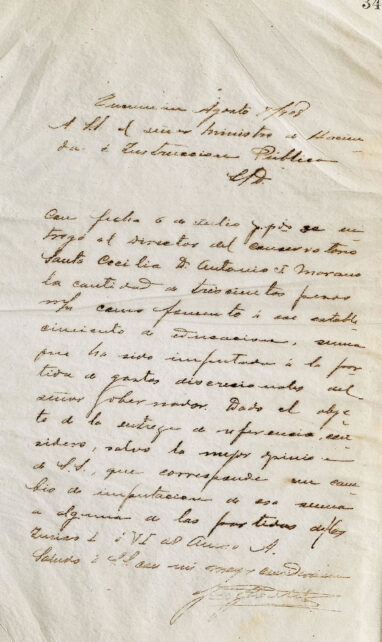 34
Tucuman Agosto 7/908
A S.S. el señor Ministro de Hacien
da é Instruccion Pública
S/D.
Con fecha 6 de Julio ppdo se en
tregó al director del conservatorio
Santa Cecilia D. Antonio Morano
la cantidad de trescientos pesos
m/n como fomento á ese estable
cimiento de educacion, suma
que ha sido imputada á la par
tida de gastos discrecionales del
señor Gobernador. Dado el obje
to de la entrega de referencia, con
sidero, salvo la mejor opinion
de S.S., que corresponde un cam
bio de imputacion de esa suma
a alguna de las partidas de los
Incisos é VI del Anexo A.
Saludo á S.S. con mi mayor consideracion